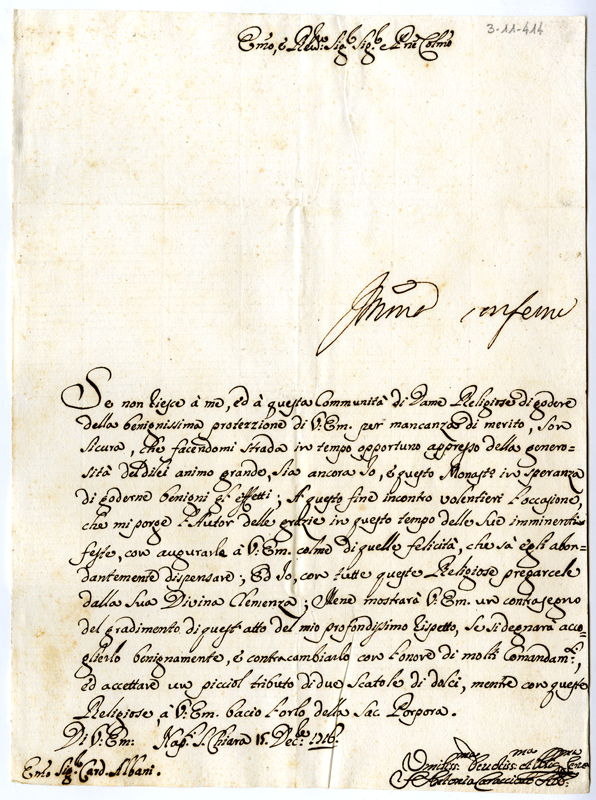 3-11-414
Emo, e Rev.mo Sig.r Sig.r e Pne Colmo
Se non riesce à me, ed à questa Communità di Dame Religiose di godere
della benignissima protezzione di V. Em. per mancanza di merito, son
sicura, che facendomi strada in tempo opportuno appresso della genero-
sità del di lei animo grande, sia ancora Io, e questo Monast.o in speranza
di goderne benigni gl'effetti; A questo fine incontro volentieri l'occasione,
che mi porge l'Autor delle grazie in questo tempo delle Sue imminenti
feste, con augurarle à V. Em. colme di quelle felicità, che sà egli abon-
dantemente dispensare; Ed Io, con tutte queste Religiose pregarcele
dalla Sua Divina Clemenza; Mene mostrarà V. Em. un contrasegno
del gradimento di quest'atto del mio profondissimo rispetto, se si degnarà acco-
glierlo benignamente, e contracambiarlo con l'onore di molti Comandam.ti,
ed accettare un picciol tributo di due Scatole di dolci, mentre con queste
Religiose à V. Em. bacio l'orlo della Sac. Porpora.
Di V. Em. Nap.i S. Chiara 15. Dec.re 1716.
Emo Sig.r Card. Albani. Umiliss.ma Devotiss.ma et
Antonia Caracciolo